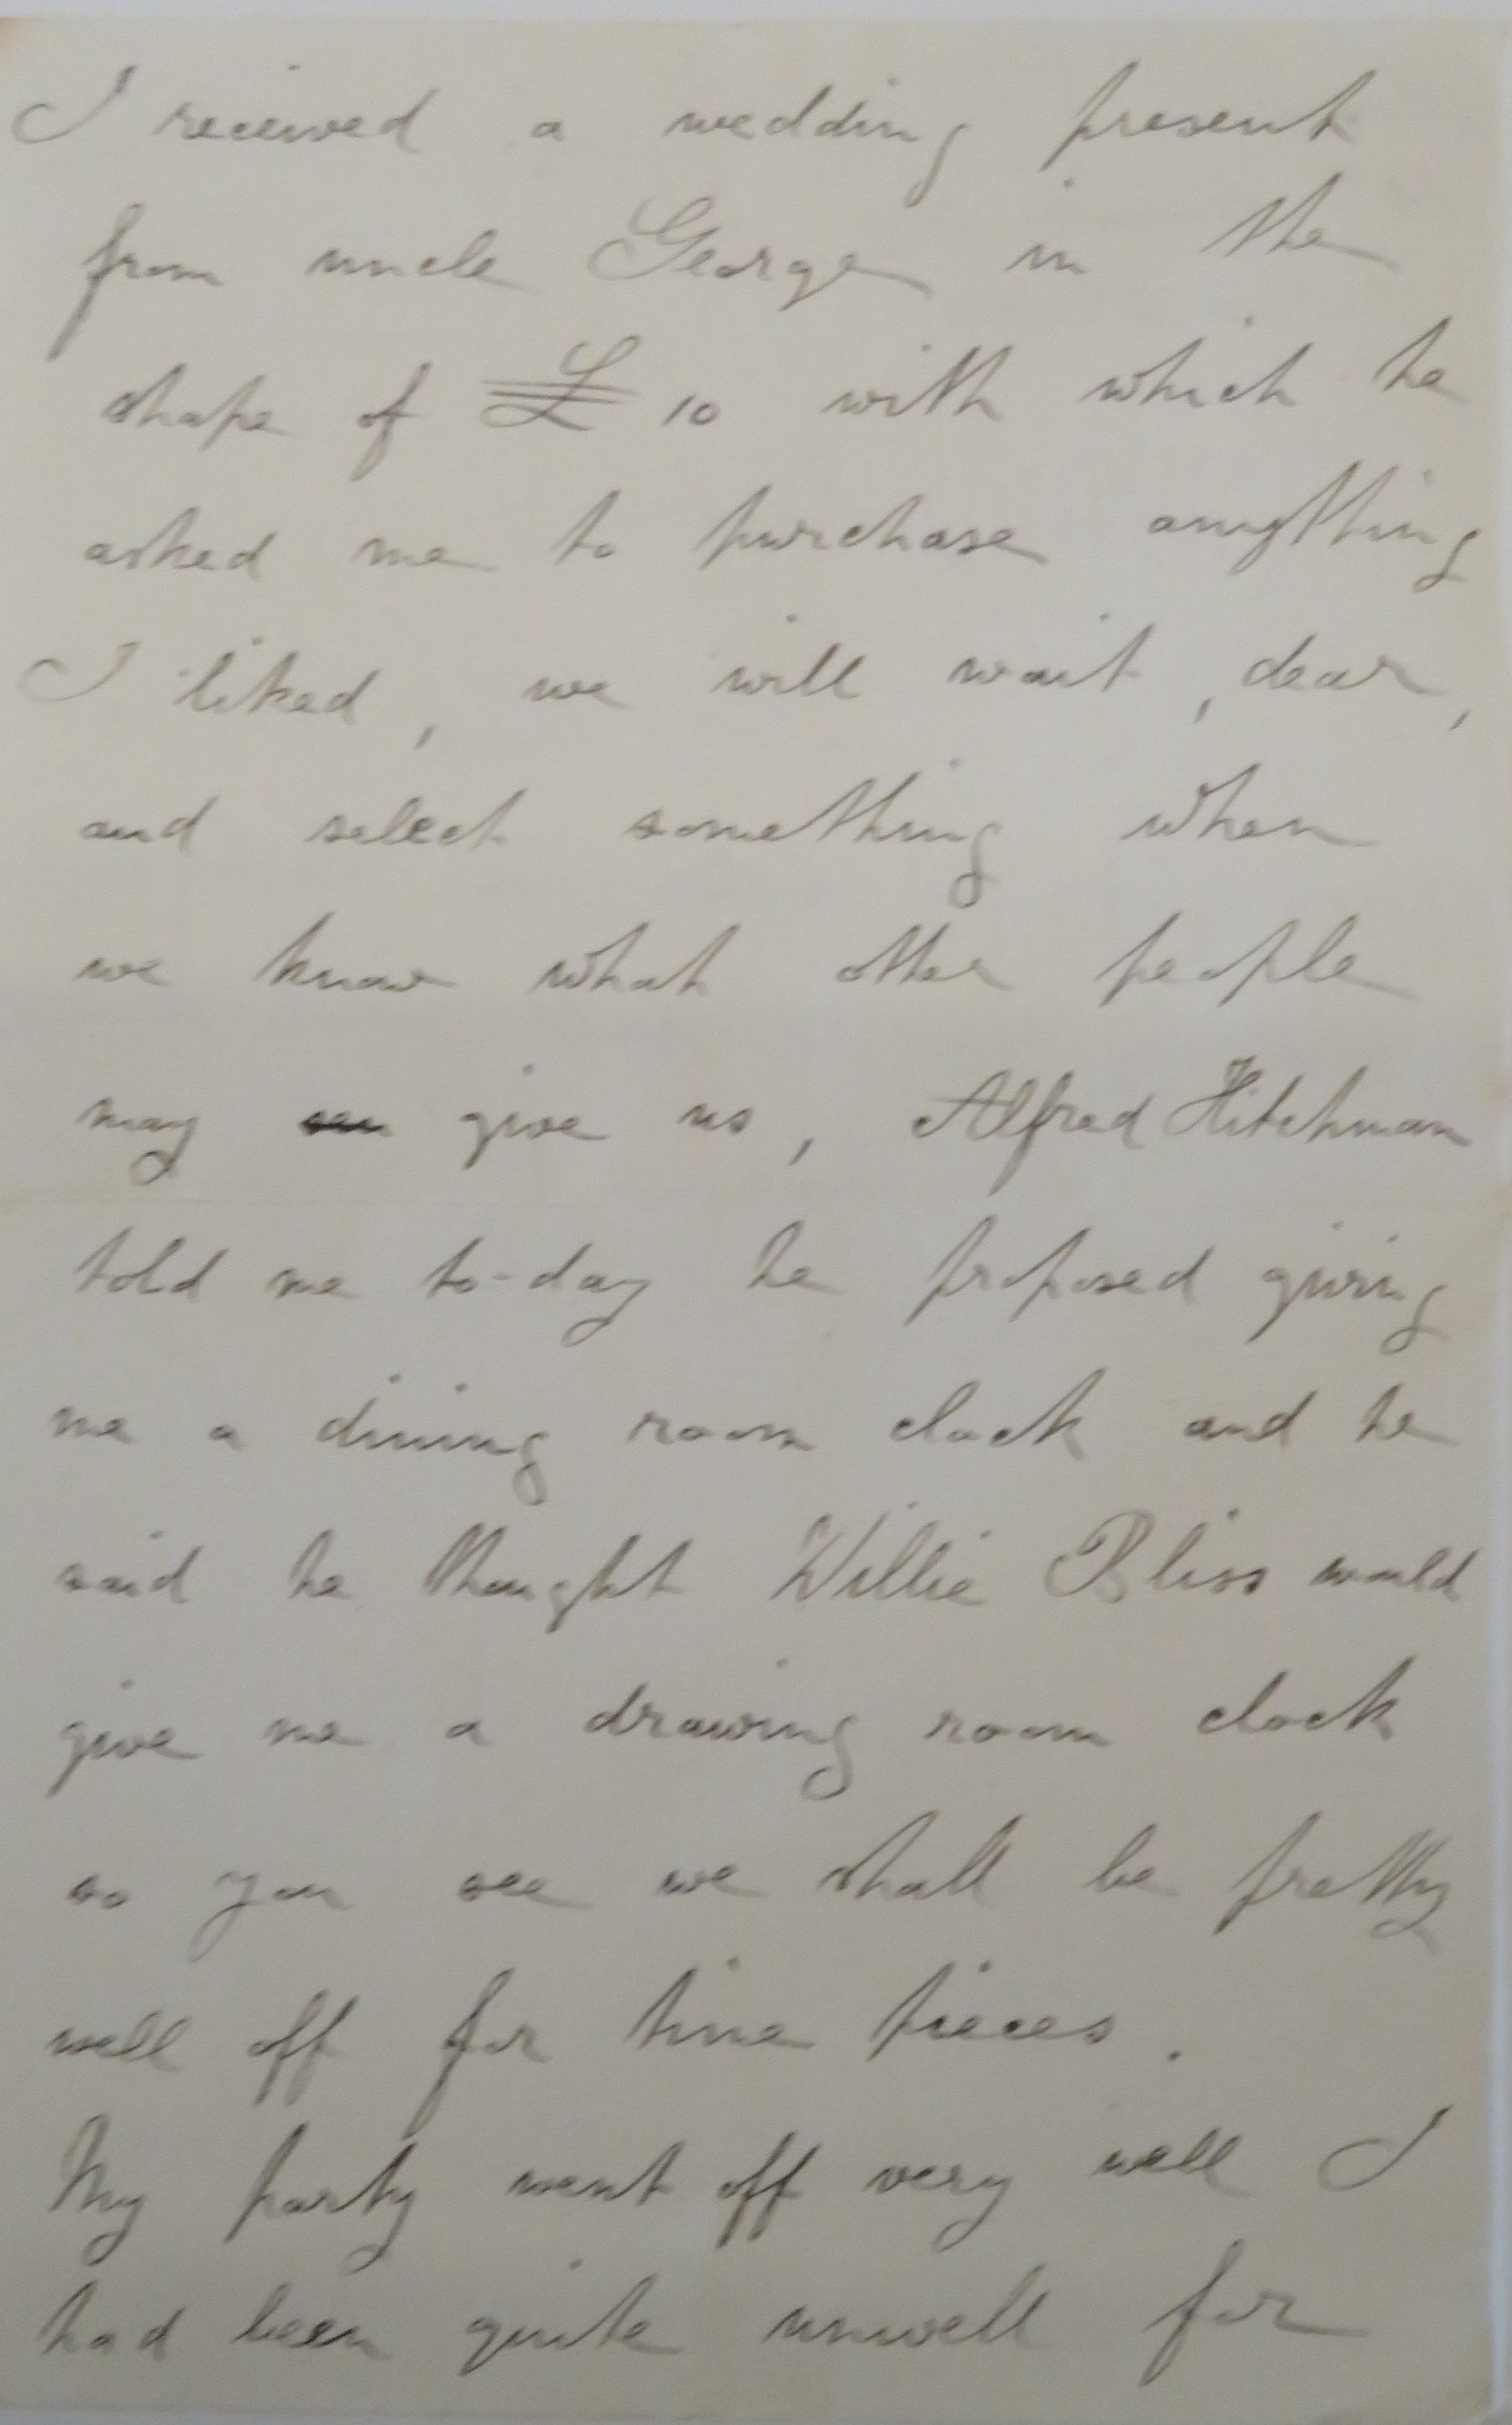 I received a wedding present
from uncle George in the
shape of £ 10 with which he
asked me to purchase anything
I liked, we will wait, dear,
and select something when
we know what other people
may give us, Alfred Hitchman
told me to-day he proposed giving
me a dining room clock and he
said he thought Willie Bliss would
give me a drawing room clock
so you see we shall be pretty
well off for time pieces.
My party went off very well I
had been quite unwell for